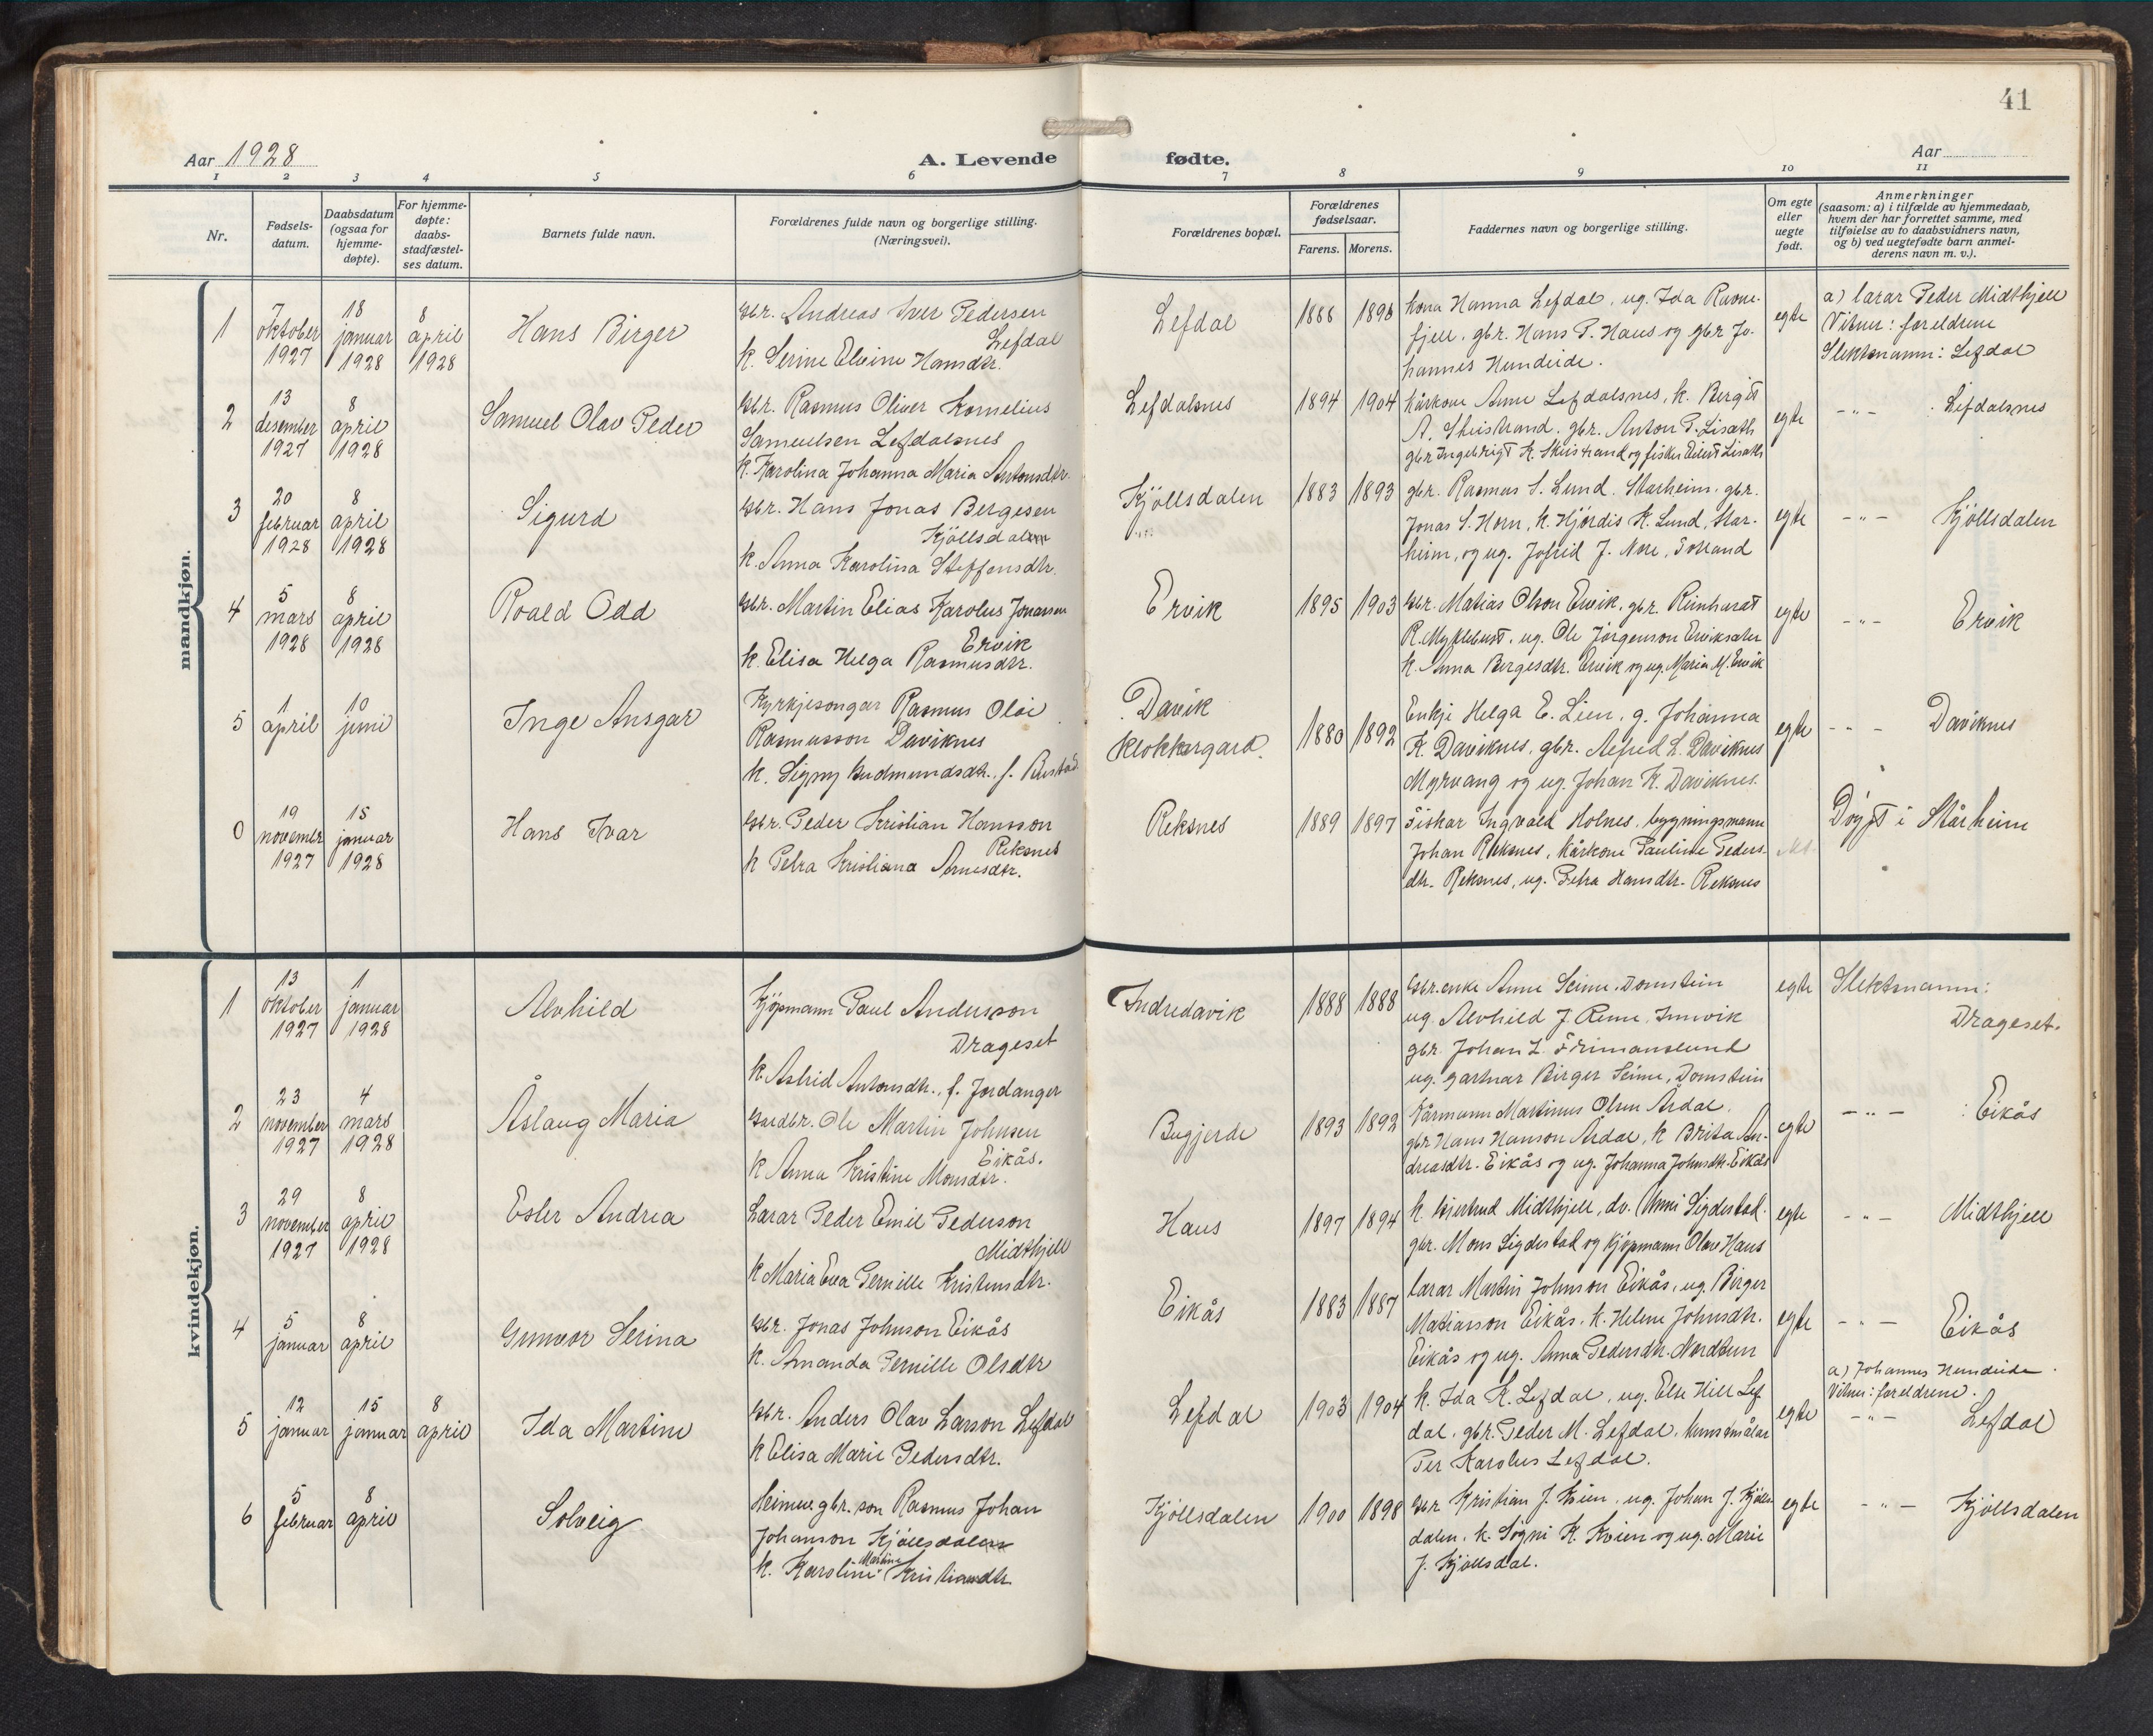 41
Aar 1928
A. Levende fødte.
Aar
1 2 3 4 5 6 7 8 9 10 11
Nr.
Fødsels-
datum.
Daabsdatum
(ogsaa for
hjemme-
døpte).
For hjemme-
døpte:
daabs-
stadfæstel-
ses datum.
Barnets fulde navn.
Forældrenes fulde navn og borgerlige stilling.
(Næringsvei).
Forældrenes bopæl.
Forældrenes
fødselsaar.
Farens. Morens.
Faddernes navn og borgerlige stilling.
Om egte
eller
uegte
født.
Anmerkninger
(saasom: a) i tilfælde av hjemmedaab,
hvem der har forrettet samme, med
tilføielse av to daabsvidners navn,
og b) ved uegtefødte barn anmel-
derens navn m. v.).
mandkjøn.
1
7
oktober
1927
18
januar
1928
8
april
1928
Hans Birger
gbr. Andreas Iver Pedersen
Lefdal
k. Serine Elvine Hansdtr.
Lefdal
1886
kona Hanna Lefdal, ug. Ida Ravne-
fjell, gbr. Hans P. Haus og gbr Jo-
hannes Hundeide.
egte
a) lærar Peder Midthjell
Vitner: foreldrene
Slektsnamn: Lefdal
2
13
desember
1927
8
april
1928
Samuel Olav Peder
gbr. Rasmus Oliver Kornelius
Samuelsen Lefdalsnes
k. Karolina Johanna Maria Antonsdtr.
Lefdalsnes
1894 1904
kårkone Anne Lefdalsnes, k. Bergit
A. Skeistrand, gbr. Anton P. Lisæth
gbr Ingebrigt K. Skeistrand og fisker Eilert Lisæth
egte
-"- Lefdalsnes
3
20
februar
1928
8
april
1928
Sigurd
gbr. Hans Jonas Bergesen
Kjöllsdalen
k. Anna Karolina Steffensdtr.
Kjöllsdalen
1883 1893
gbr. Rasmus S. Lund, Starheim, gbr.
Jonas S. Horn, k. Hjördis K. Lund, Star-
heim, og ug. Jofrid J. Nore, Totland
egte
-"- Kjöllsdalen
4
5
mars
1928
8
april
1928
Roald Odd
gbr. Martin Elias Karolus Jonassen
Ervik
k. Elisa Helga Rasmusdtr.
Ervik
1895 1903
gbr. Matias Olson Ervik, gbr. Reinhardt
R. Myklebust, ug. Ole Jörgenson Erviksæter
k. Anna Bergesdtr. Ervik og ug. Maria M. Ervik
egte
-"- Ervik
5
1
april
10
juni
Inge Ansgar
Kyrkjesongar Rasmus Olai
Rasmusson Daviknes
k. Signy Gudmundsdtr., f.
Davik
Klokkargard.
1880 1892
Enkje Helga E. Lien, g. Johanna
K. Daviknes, gbr. Alfred L. Daviknes
Myrvang og ug. Johan K. Daviknes.
egte
-"- Daviknes
0
19
november
1927
15
januar
1928
Hans Ivar
gbr. Peder Kristian Hansson
Reksnes
k Petra Kristiana Arnesdtr.
Reksnes
1889 1897
Fiskar Ingvald Holnes, bygningsmann
Johan Reksnes, kårkone Pauline Peders-
dtr. Reksnes, ug. Petra Hansdtr. Reksnes
Döypt i Stårheim
kvindekjøn.
1
13
oktober
1927
1
januar
1928
Alvhild
Kjöpmann Paul Andersson
Drageset
k Astrid Antonsdtr., f. Jordanger
Indredavik
1888 1888
gbr.enke Anne Seime, Domstein
ug. Alvhild J. Reme, Innvik
gbr. Johan L. Frimanslund
ug. gartnar Birger Seime, Domstein
egte
Slektsnamn:
Drageset.
2
23
november
1927
4
mars
1928
Åslaug Maria
Gardbr. Ole Martin Johnsen
Eikås.
k Anna Kristine Monsdtr.
Bugjerde
1893 1892
Kårmann Martinus Olsen Årdal,
gbr Hans Hanson Årdal, k Brita An-
dreasdtr. Eikås og ug. Johanna Johnsdtr. Eikås
egte
-"- : Eikås
3
29
november
1927
8
april
1928
Ester Andrea
Lærar Peder Emil Pederson
Midthjell
k Maria Eva Pernille Kristensdtr.
Haus
1897 1894
k. Gjertrud Midthjell, dv. Unni Sigdestad
gbr. Mons Sigdestad og kjöpmann Olav Haus
egte
-"- Midthjell
4
5
januar
8
april
Gunvor Serina
gbr. Jonas Johnson Eikås
k. Amanda Pernille Olsdtr
Eikås
1883 1887
lærar Martin Johnson Eikås, ug. Birger
Matiasson Eikås, k. Helene Johnsdtr.
Eikås og ug. Anna Pedersdtr. Nordtun
egte
-"- Eikås
5
12
januar
15
januar
8
april
Ida Martine
gbr. Anders Olav Larson Lefdal
k Elisa Marie Pedersdtr.
Lefdal
1903 1904
k. Ida K. Lefdal, ug. Else Hill Lef-
dal, gbr. Peder M. Lefdal, kunstmålar
Per Karolus Lefdal.
egte
a) Johannes Hundeide.
Vitner: foreldrene.
-"- Lefdal
6
5
februar
8
april
Solveig
Heimeve gbr. son Rasmus Johan
Johanson Kjöllsdalen
k. Karoline Martine Kristiansdtr.
Kjöllsdalen
1900 1898
gbr Kristian J. Kvien, ug. Johan J. Kjölls-
dalen, k. Sögni K. Kvien og ug. Marie
J. Kjöllsdal.
egte
-"- Kjöllsdalen